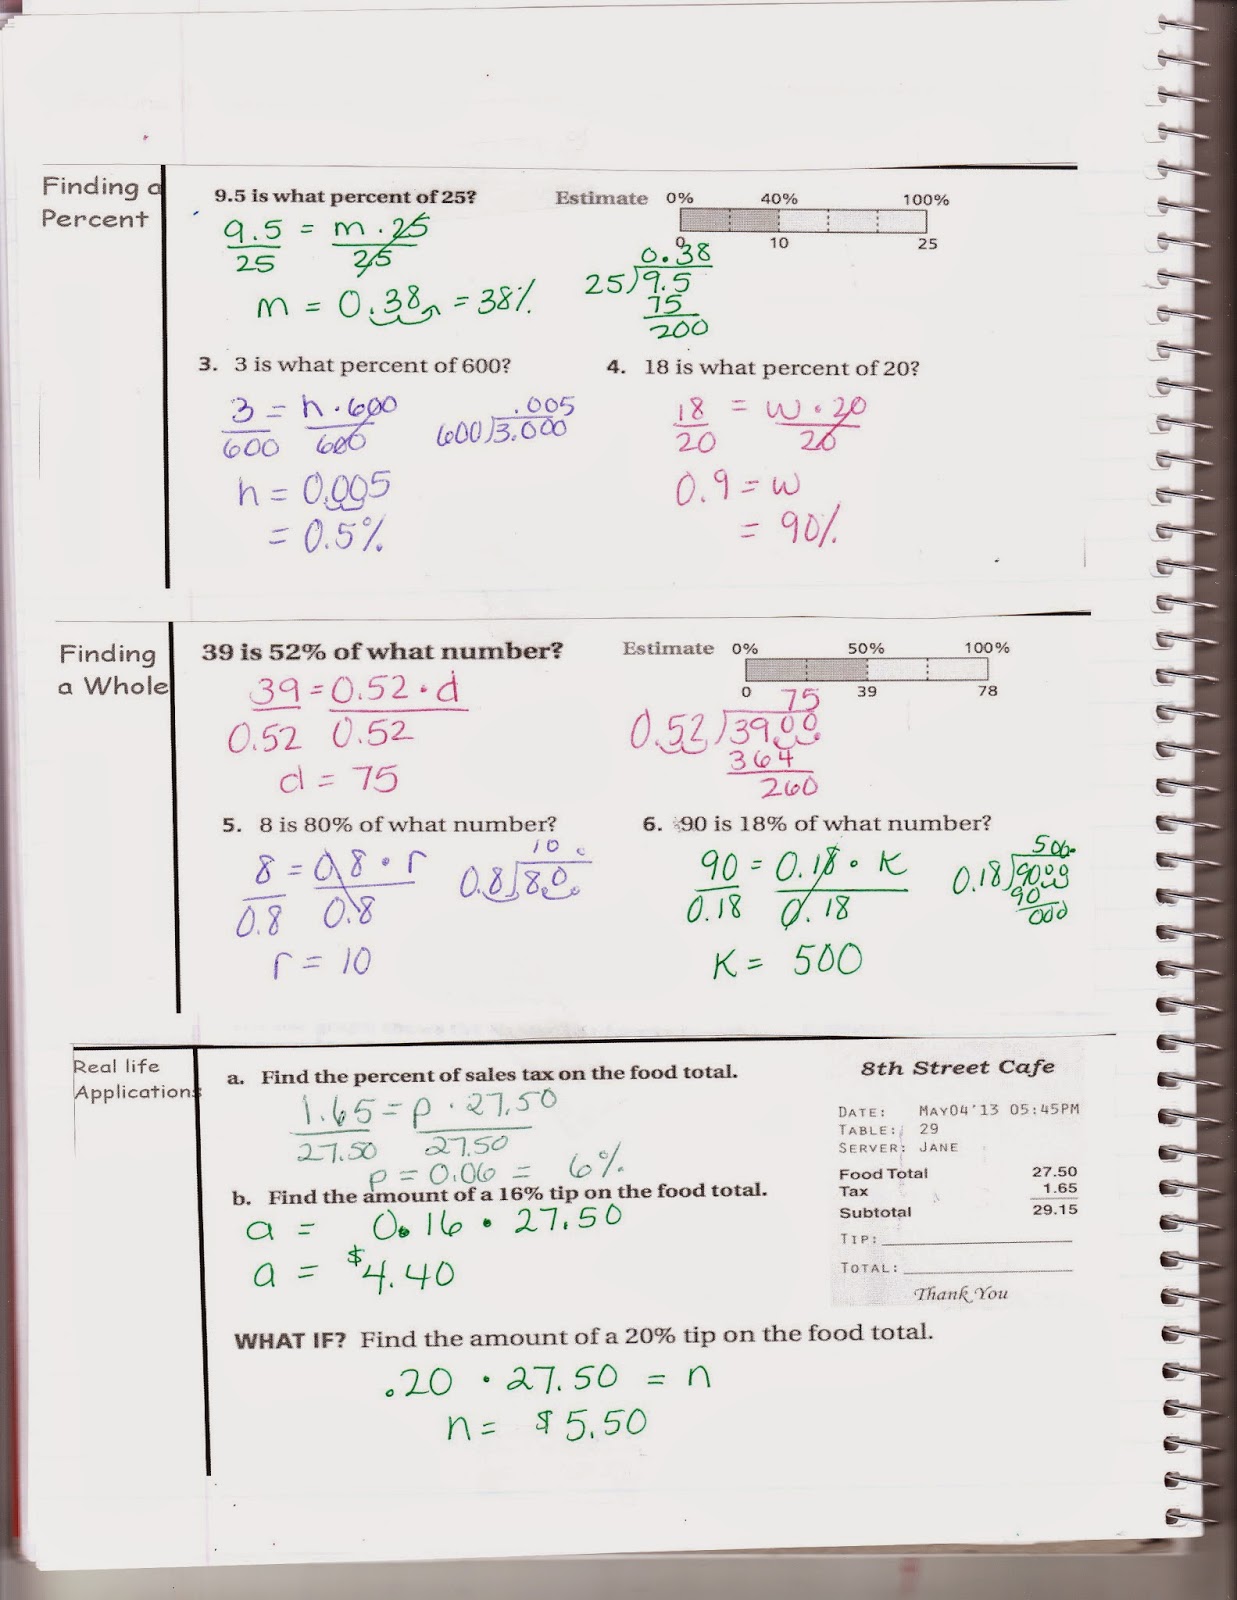 Finding a
Percent
9.5 is what percent of 25?
Estimate 0% 40% 100%
0 10 25
9.5 = m · 25
25 25
m = 0.38 = 38%
0.38
25)9.5
75
200
3. 3 is what percent of 600?
3 = n · 600
600 600
n = 0.005
= 0.5%
.005
600)3.000
4. 18 is what percent of 20?
18 = w · 20
20 20
0.9 = w
= 90%
Finding
a Whole
39 is 52% of what number?
Estimate 0% 50% 100%
0 39 78
39 = 0.52 · d
0.52 0.52
d = 75
75
0.52)3900
364
260
5. 8 is 80% of what number?
8 = 0.8 · r
0.8 0.8
r = 10
10
0.8)8.0
6. 90 is 18% of what number?
90 = 0.18 · K
0.18 0.18
K = 500
500.
0.18)9000
90
000
Real life
Applications
a. Find the percent of sales tax on the food total.
1.65 = p · 27.50
27.50 27.50
p = 0.06 = 6%
b. Find the amount of a 16% tip on the food total.
a = 0.16 · 27.50
a = $4.40
8th Street Cafe
DATE: MAY04'13 05:45PM
TABLE: 29
SERVER: JANE
Food Total 27.50
Tax 1.65
Subtotal 29.15
TIP:
TOTAL:
Thank You
WHAT IF? Find the amount of a 20% tip on the food total.
.20 · 27.50 = n
n = $5.50